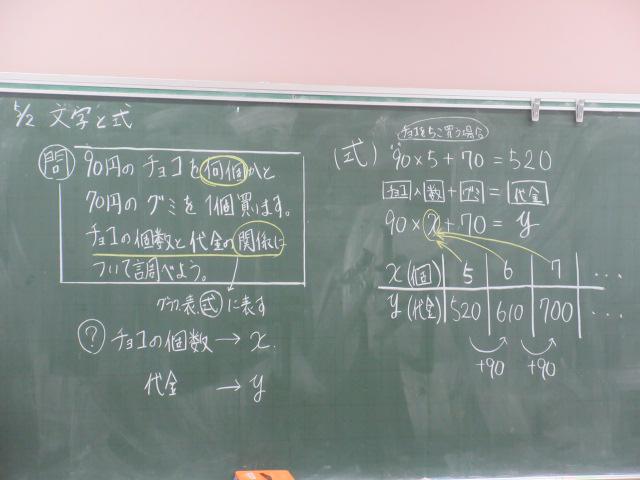 5/2 文字と式
問 90円のチョコを何個かと
70円のグミを1個買います。
チョコの個数と代金の関係に
ついて調べよう。
グラフ、表、式に表す
? チョコの個数 → x
代金 → y
チョコを5こ買う場合
(式) 90×5+70=520
チョコ×数+グミ=代金
90×x+70=y
x(個) 5 6 7 ...
y(代金) 520 610 700 ...
+90 +90